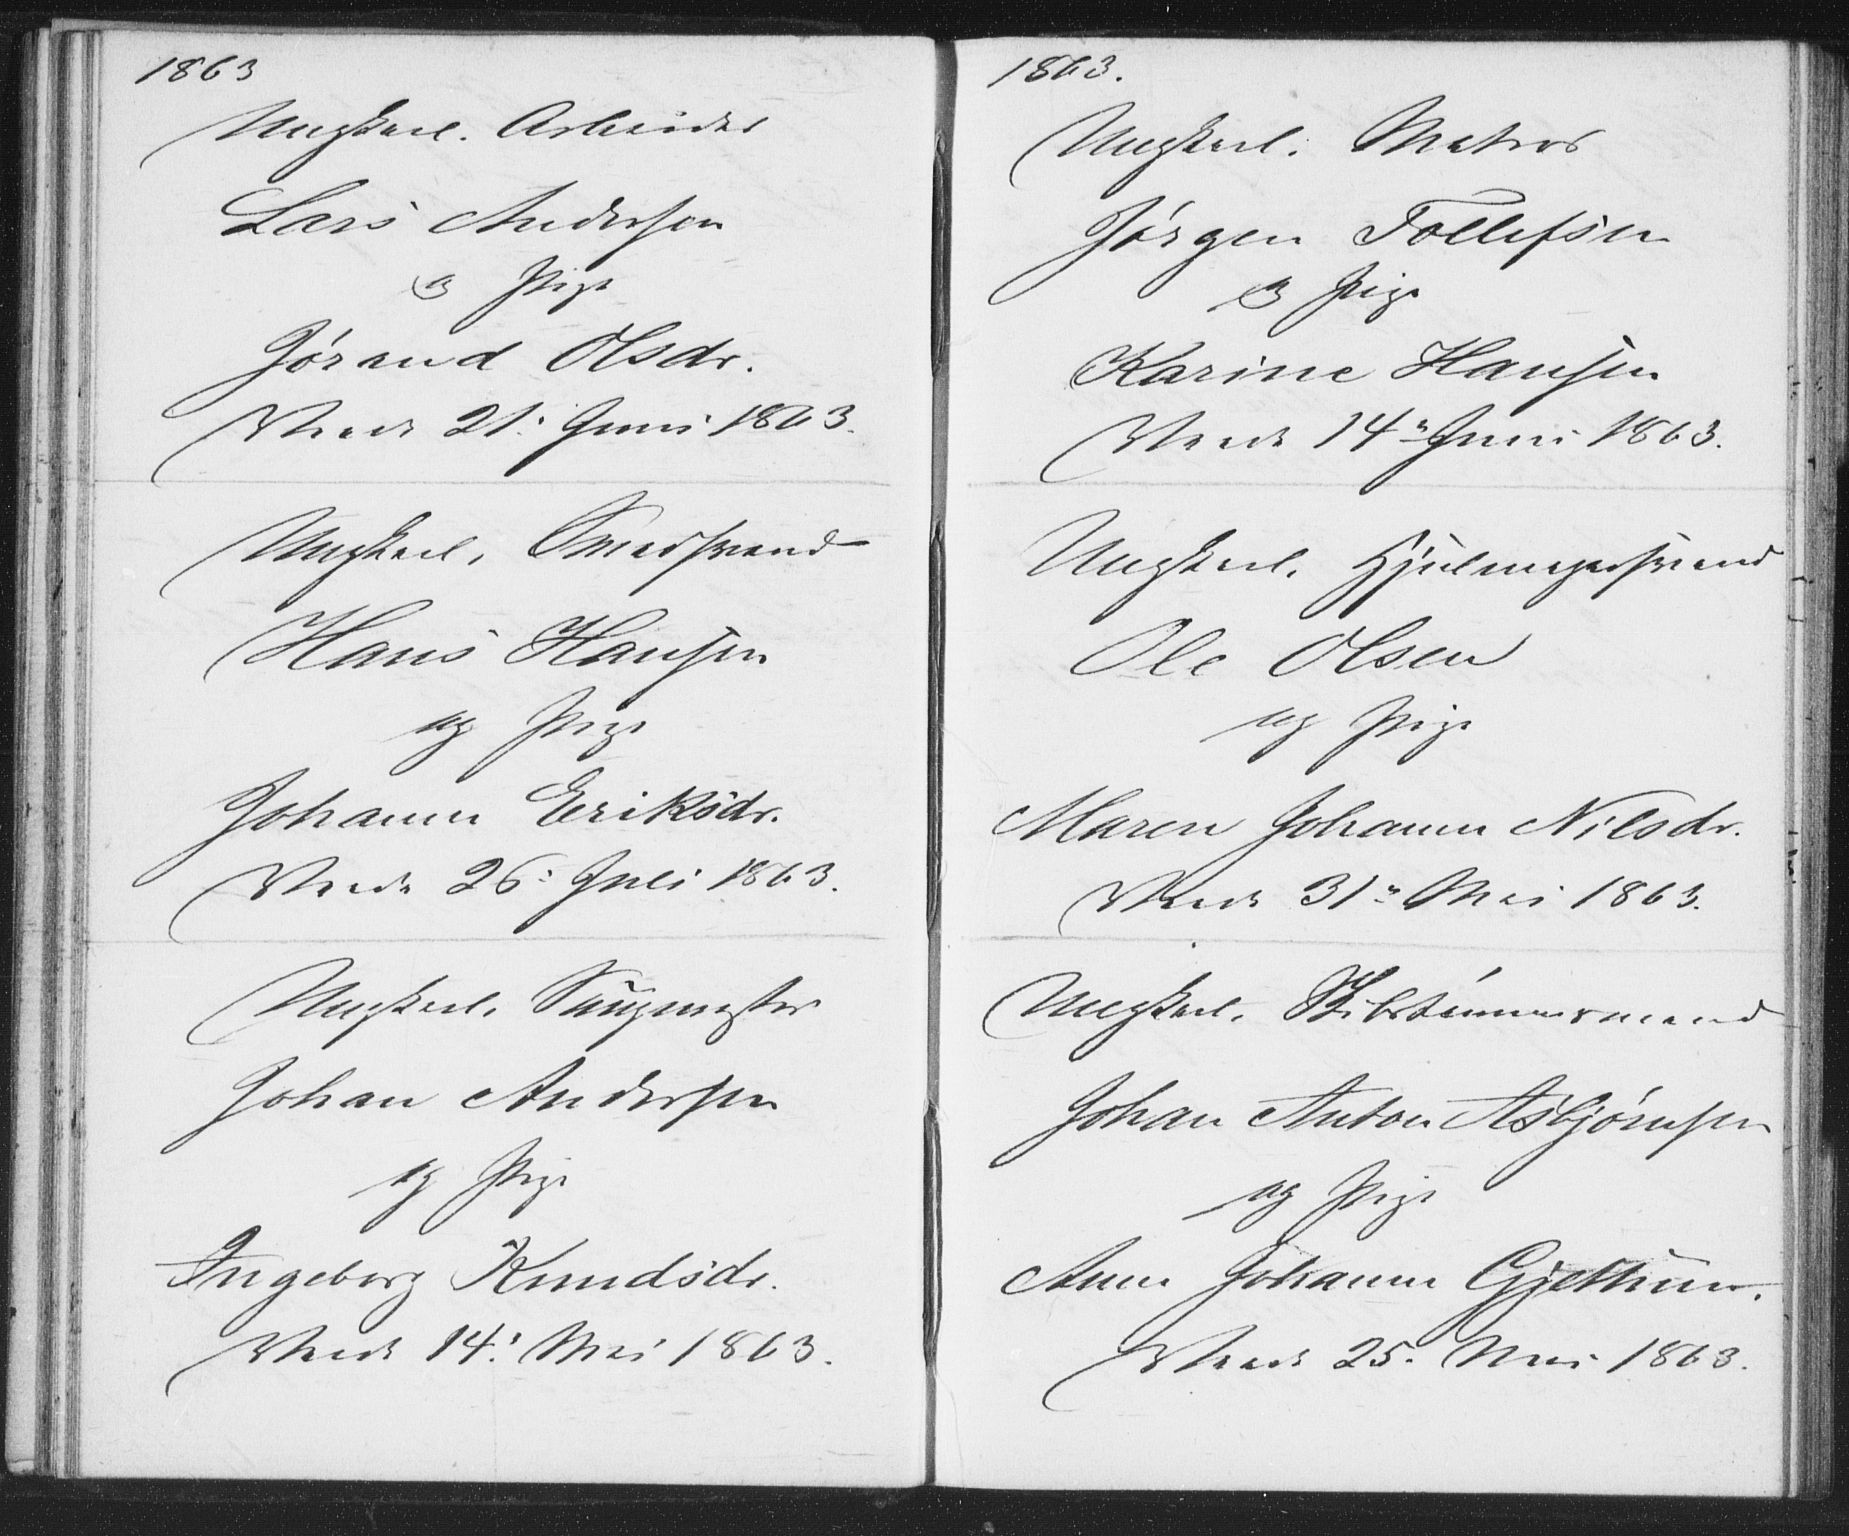 1863
Ungkarl. Arbeider
Lars Andersen
og Pige
Jørand Olsdr.
Viede 21: Juni 1863.
Ungkarl, Smedsvend
Hans Hansen
og Pige
Johanne Eriksdr.
Viede 26: Juli 1863.
Ungkarl, Saugmester
Johan Andersen
og Pige
Ingeborg Knudsdr.
Viede 14: Mai 1863.
1863.
Ungkarl. Matros
Jørgen Tollefsen
og Pige
Karine Hansen
Viede 14de Juni 1863.
Ungkarl. Hjulmagersvend
Ole Olsen
og Pige
Maren Johanne Nilsdr.
Viede 31te Mai 1863.
Ungkarl. Skibstømmermand
Johan Anton Asbjørnsen
og Pige
Anne Johanne
Viede 25. Mai 1863.